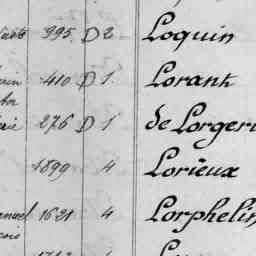 995 D 2 Loquin
410 D 1 Lorant
276 D 1 de Lorgeri
1899 4 Lorieux
1621 4 Lorphelin